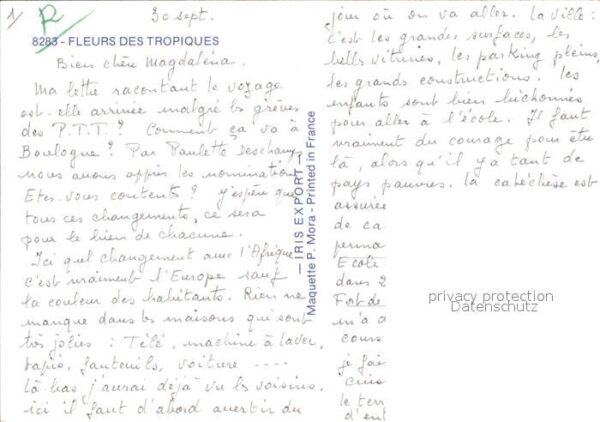 1/ R
30 sept.
8283 - FLEURS DES TROPIQUES
Bien chère Magdaléna.
Ma lettre racontant le voyage
est-elle arrivée malgré les grèves
des P.T.T.? Comment ça va à
Boulogne? Par Paulette Deschamps
nous avons appris les nominations
Etes-vous contents? J'espère que
tous ces changements, ce sera
pour le bien de chacune.
Ici quel changement avec l'Afrique
c'est vraiment l'Europe sauf
la couleur des habitants. Rien ne
manque dans les maisons qui sont
très jolies : Télé, machine à laver,
tapis, fauteuils, voiture ----
Là bas j'aurai déjà vu les voisins,
ici il faut d'abord avertir du
— IRIS EXPORT —
Maquette P. Mora - Printed in France
jour où on va aller. La ville :
c'est les grandes surfaces, les
belles vitrines, les parking pleins,
les grandes constructions. Les
enfants sont bien
pour aller à l'école. Il faut
vraiment du courage pour être
là, alors qu'il y a tant de
pays pauvres. La catéchèse est
assurée
de ca
perma
Ecole
dans 2
Fort de
m'a d
cours
je fai
le terr
d'ent
privacy protection
Datenschutz